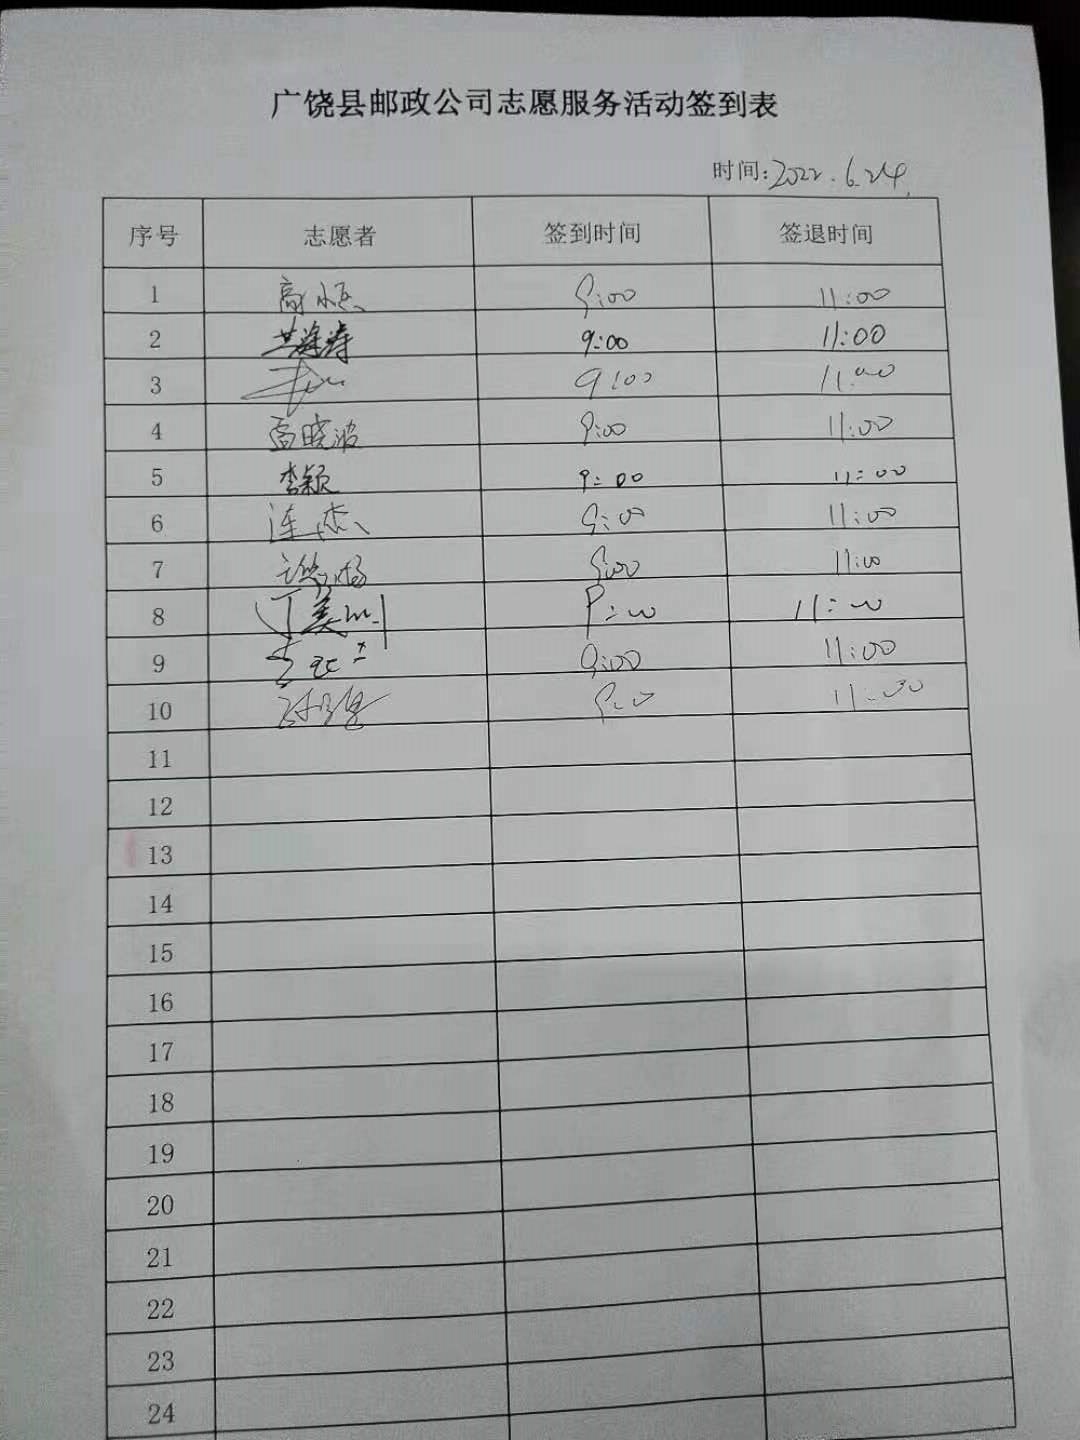 广饶县邮政公司志愿服务活动签到表
时间:2022.6.24
序号 志愿者 签到时间 签退时间
1 9:00 11:00
2 9:00 11:00
3 9:00 11:00
4 雷晓波 9:00 11:00
5 李颖 9:00 11:00
6 连杰 9:00 11:00
7 9:00 11:00
8 9:00 11:00
9 9:00 11:00
10
11
12
13
14
15
16
17
18
19
20
21
22
23
24